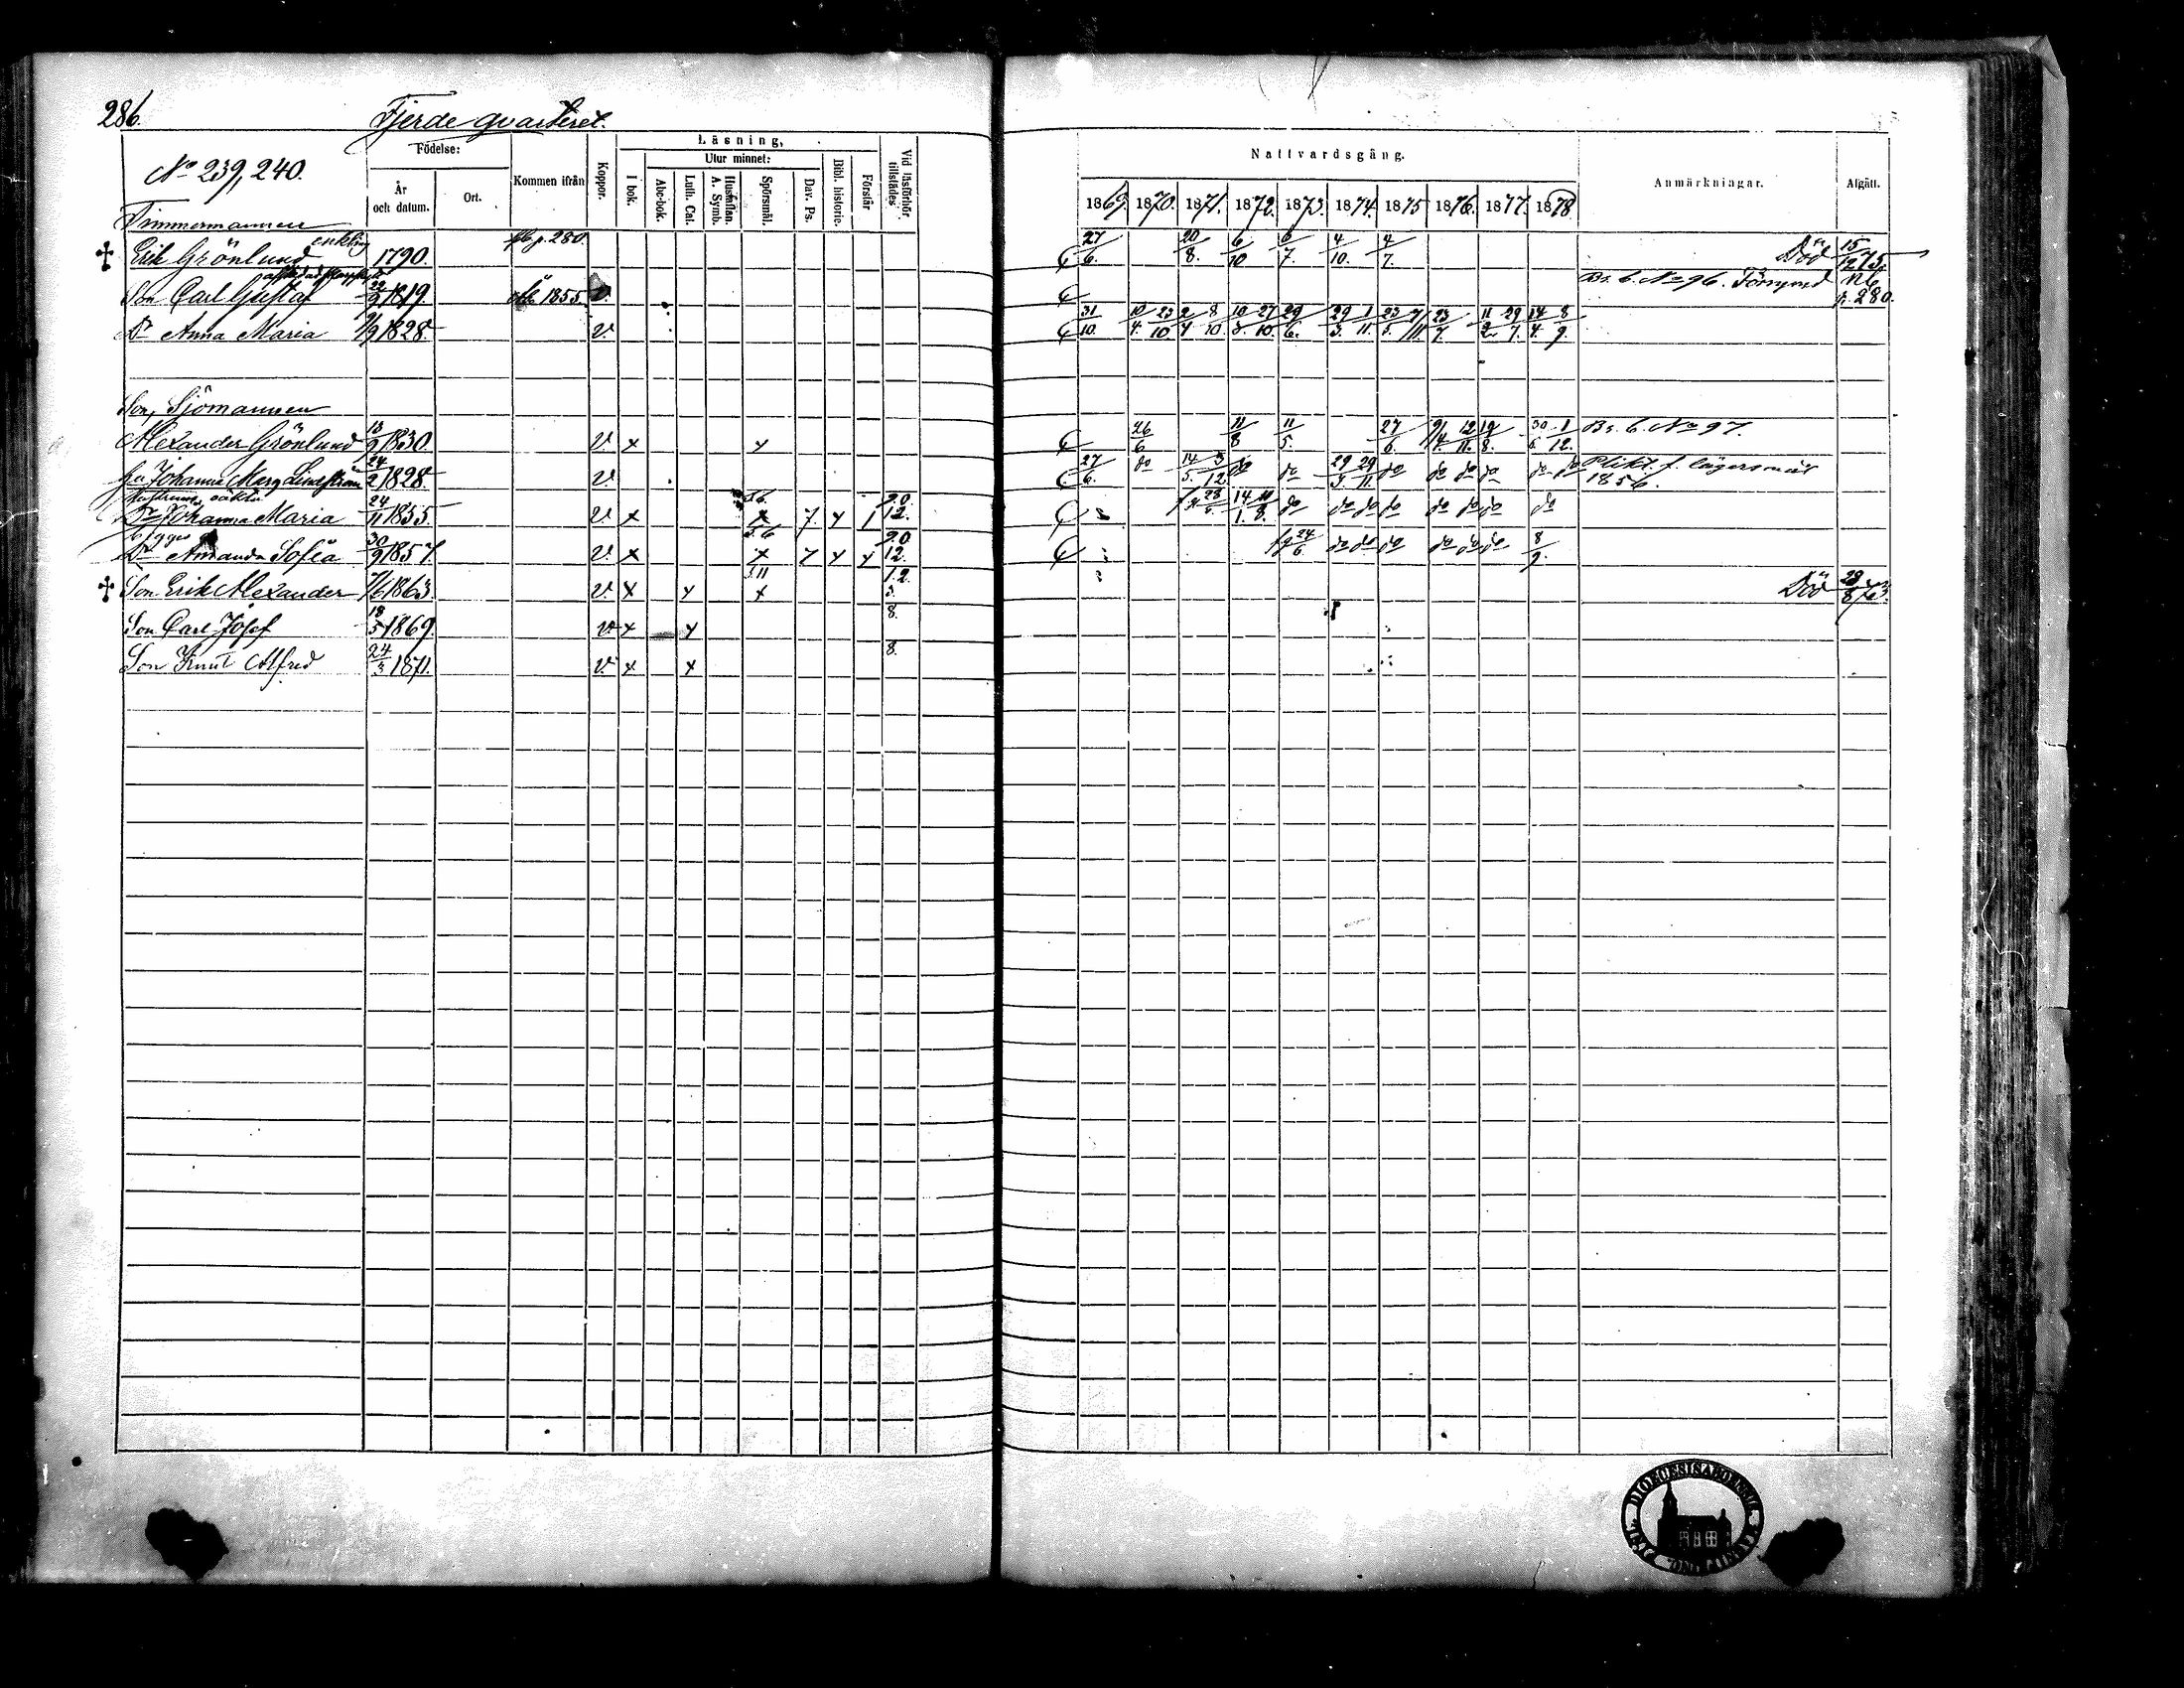 286.
Fjerde qvarteret.
No 239, 240.
Födelse:
År och datum.
Ort.
Kommen ifrån
Koppor.
Läsning,
I bok.
Utur minnet:
Abc-bok.
Luth. Cat.
Hustaflan. A. Symb.
Spörsmål.
Dav. Ps.
Bibl. historie.
Förstår
Vid läsförhör tillstädes
Nattvardsgång.
1869. 1870. 1871. 1872. 1873. 1874. 1875 1876. 1877. 1878
Anmärkningar.
Afgått.
Timmermannen
Erik Grönlund enkling 1790. p. 280. 27/6. 20/8. 6/10 6/7. 4/10. 4/7. Död 15/12 75.
Son Carl Gustaf 22/9 1819. 1855. v. Br. b. No 96. Förrymd N.b. p. 280.
Dr Anna Maria 9/9 1828. v. 31/10. 10/4. 23/10. 2/4 8/10. 10/8. 27/10. 29/6. 29/3. 1/11. 23/5. 7/11. 23/7. 11/2. 29/7. 14/4. 8/9.
Son, Sjömannen
Alexander Grönlund 13/9 1830. v. x x 26/6 11/8 11/5. 27/6. 9/4. 12/11. 19/8. 30/6. 1/12. Br. b. No 97.
Hu Johanna Marg Lindström 24/2 1828. v. 27/6. do 14/5. 3/12. do do 29/3. 29/11. do do do do do do Plikt. f. lägersmål 1856.
Hustruns oäkta
Dr Johanna Maria 24/11 1855. v. x 5.6 x 7 x 1 20. 12. 28 14/1. 11/8. do do do do do do do do
Dr Amanda Sofia 30/9 1857. v. x 5.6 x 7 x x 20 12. 24/6. do do do do do do 8/9.
Son Erik Alexander 7/6 1863. v. x x 5.11 x 12. 3. Död 28/8 73.
Son Carl Josef 18/5 1869. v. x x 8.
Son Knut Alfred 24/3 1871. v. x x 8.
DIOECESIS ABOENSIS